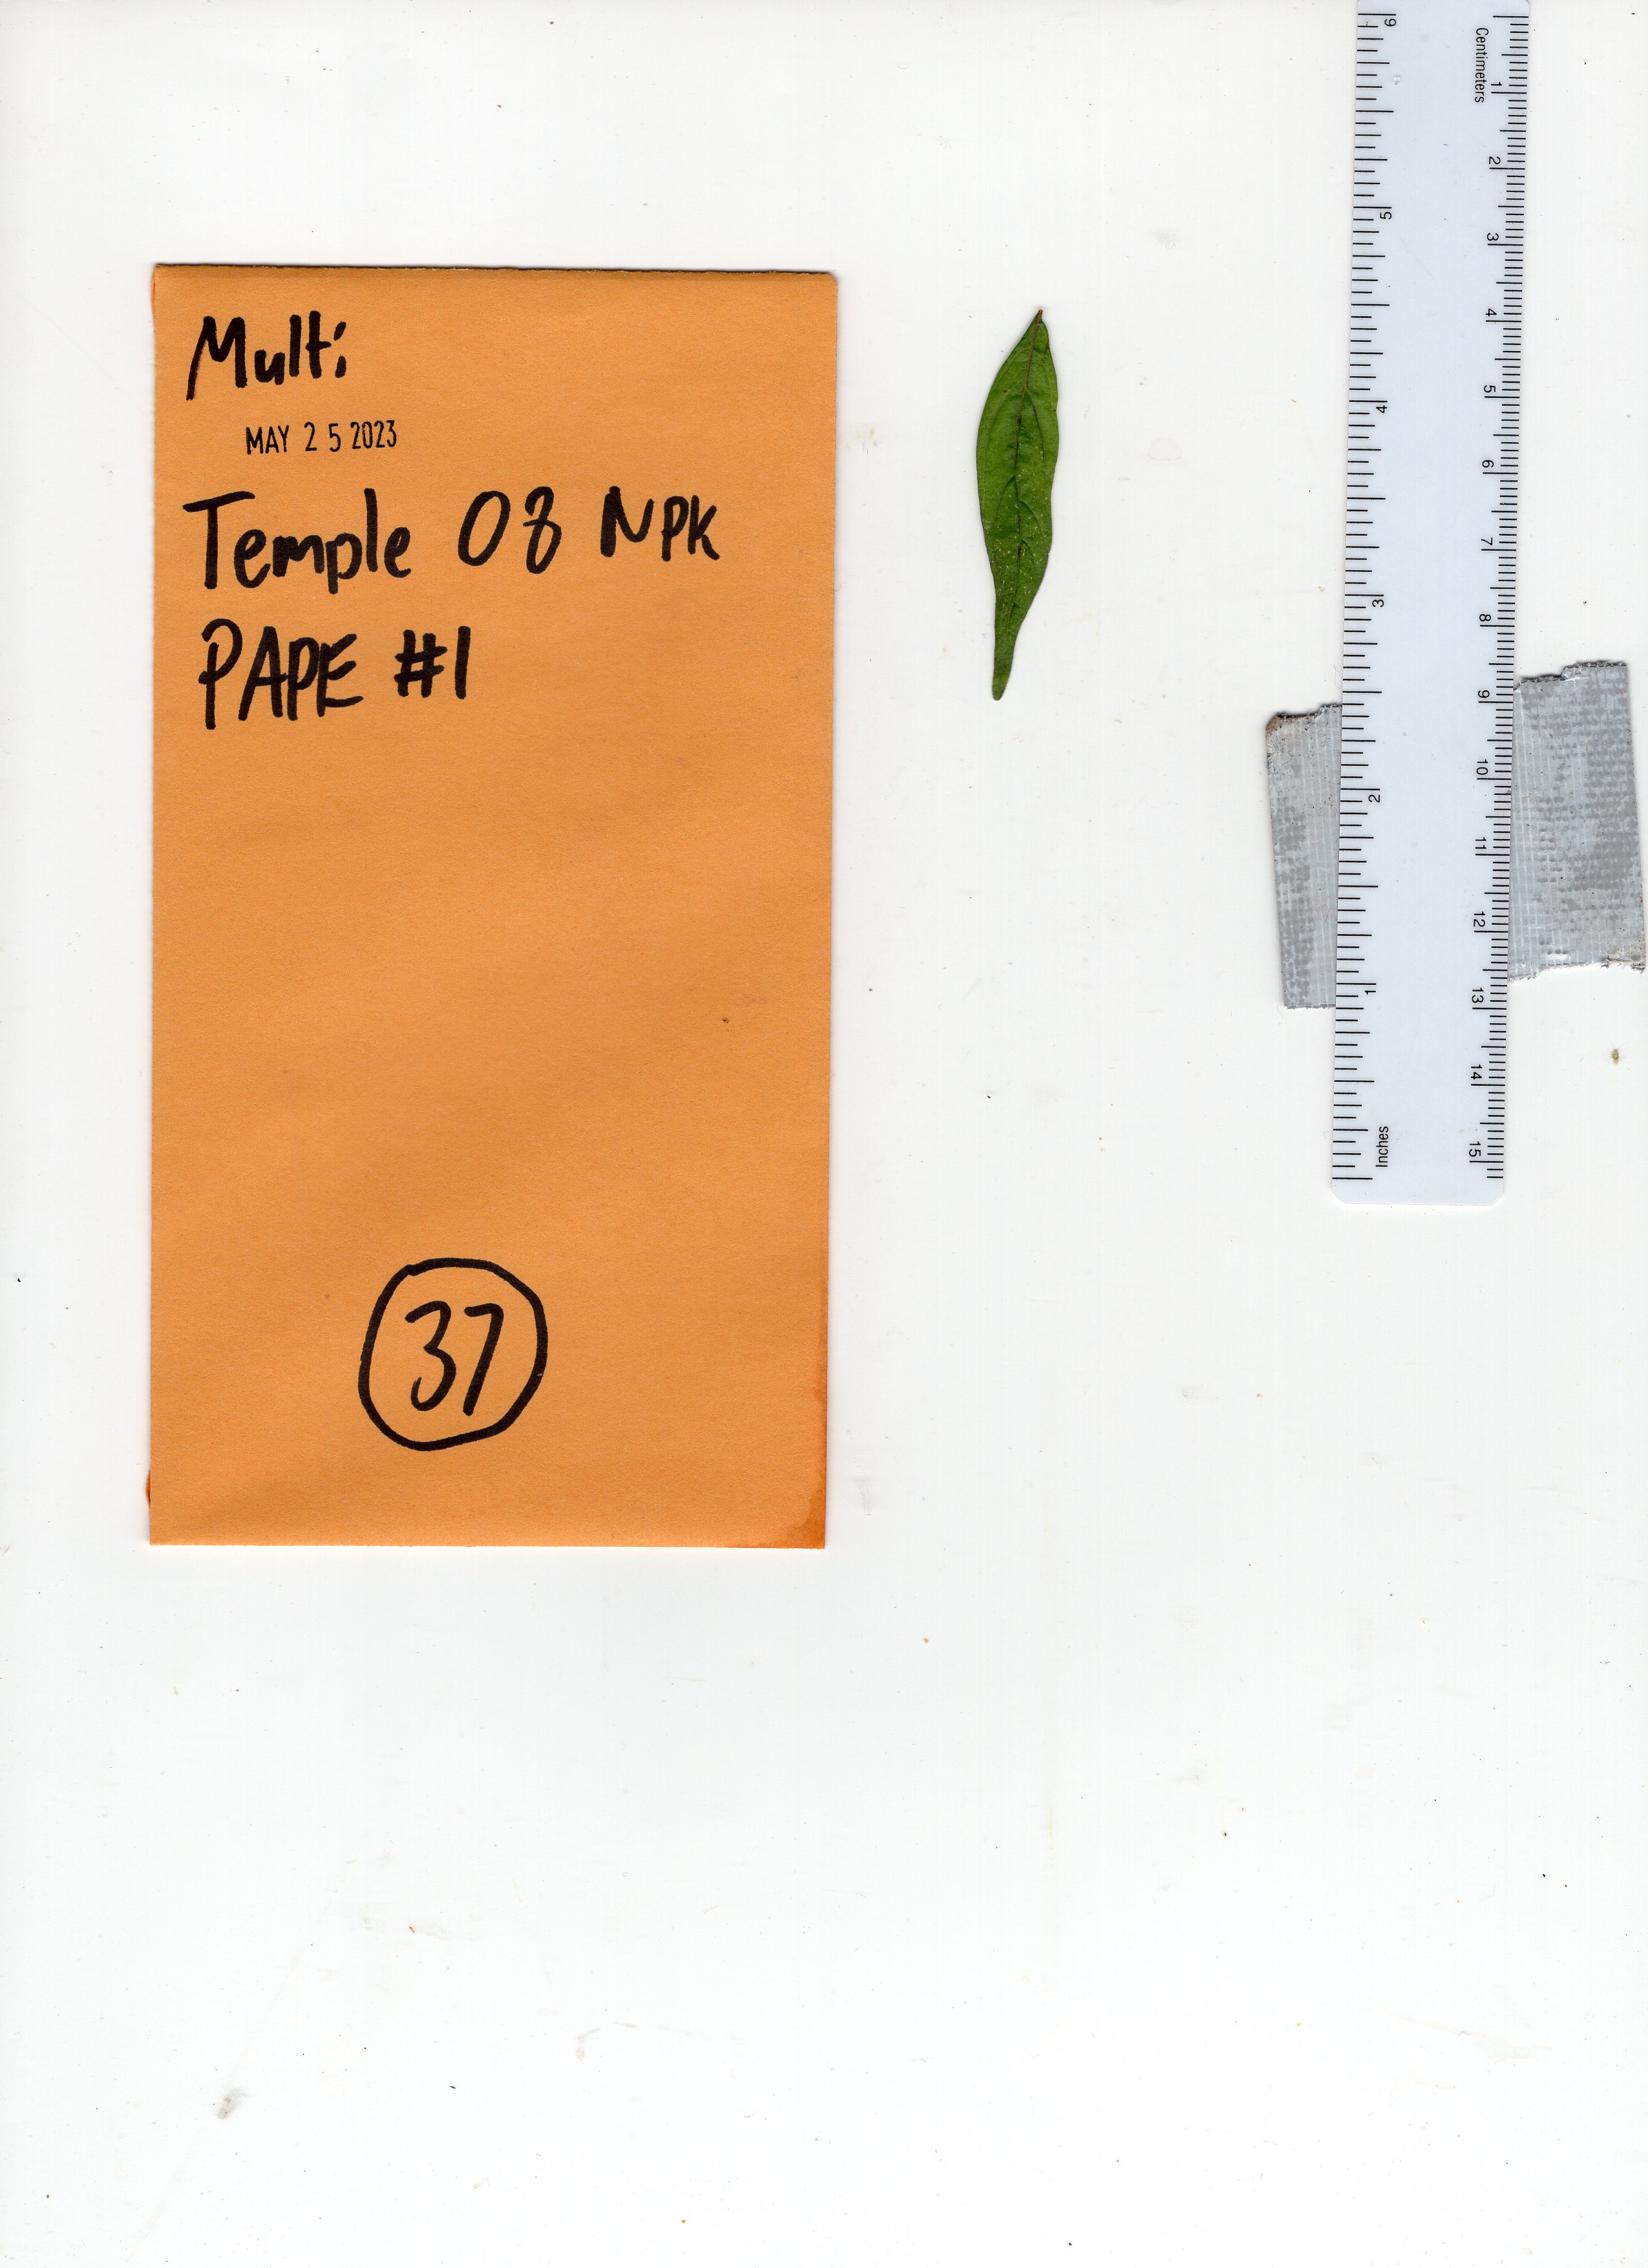 Multi
MAY 25 2023
Temple 08 NPK
PAPE #1
37
Centimeters
1
2
3
4
5
6
7
8
9
10
11
12
13
14
15
6
5
4
3
2
1
Inches